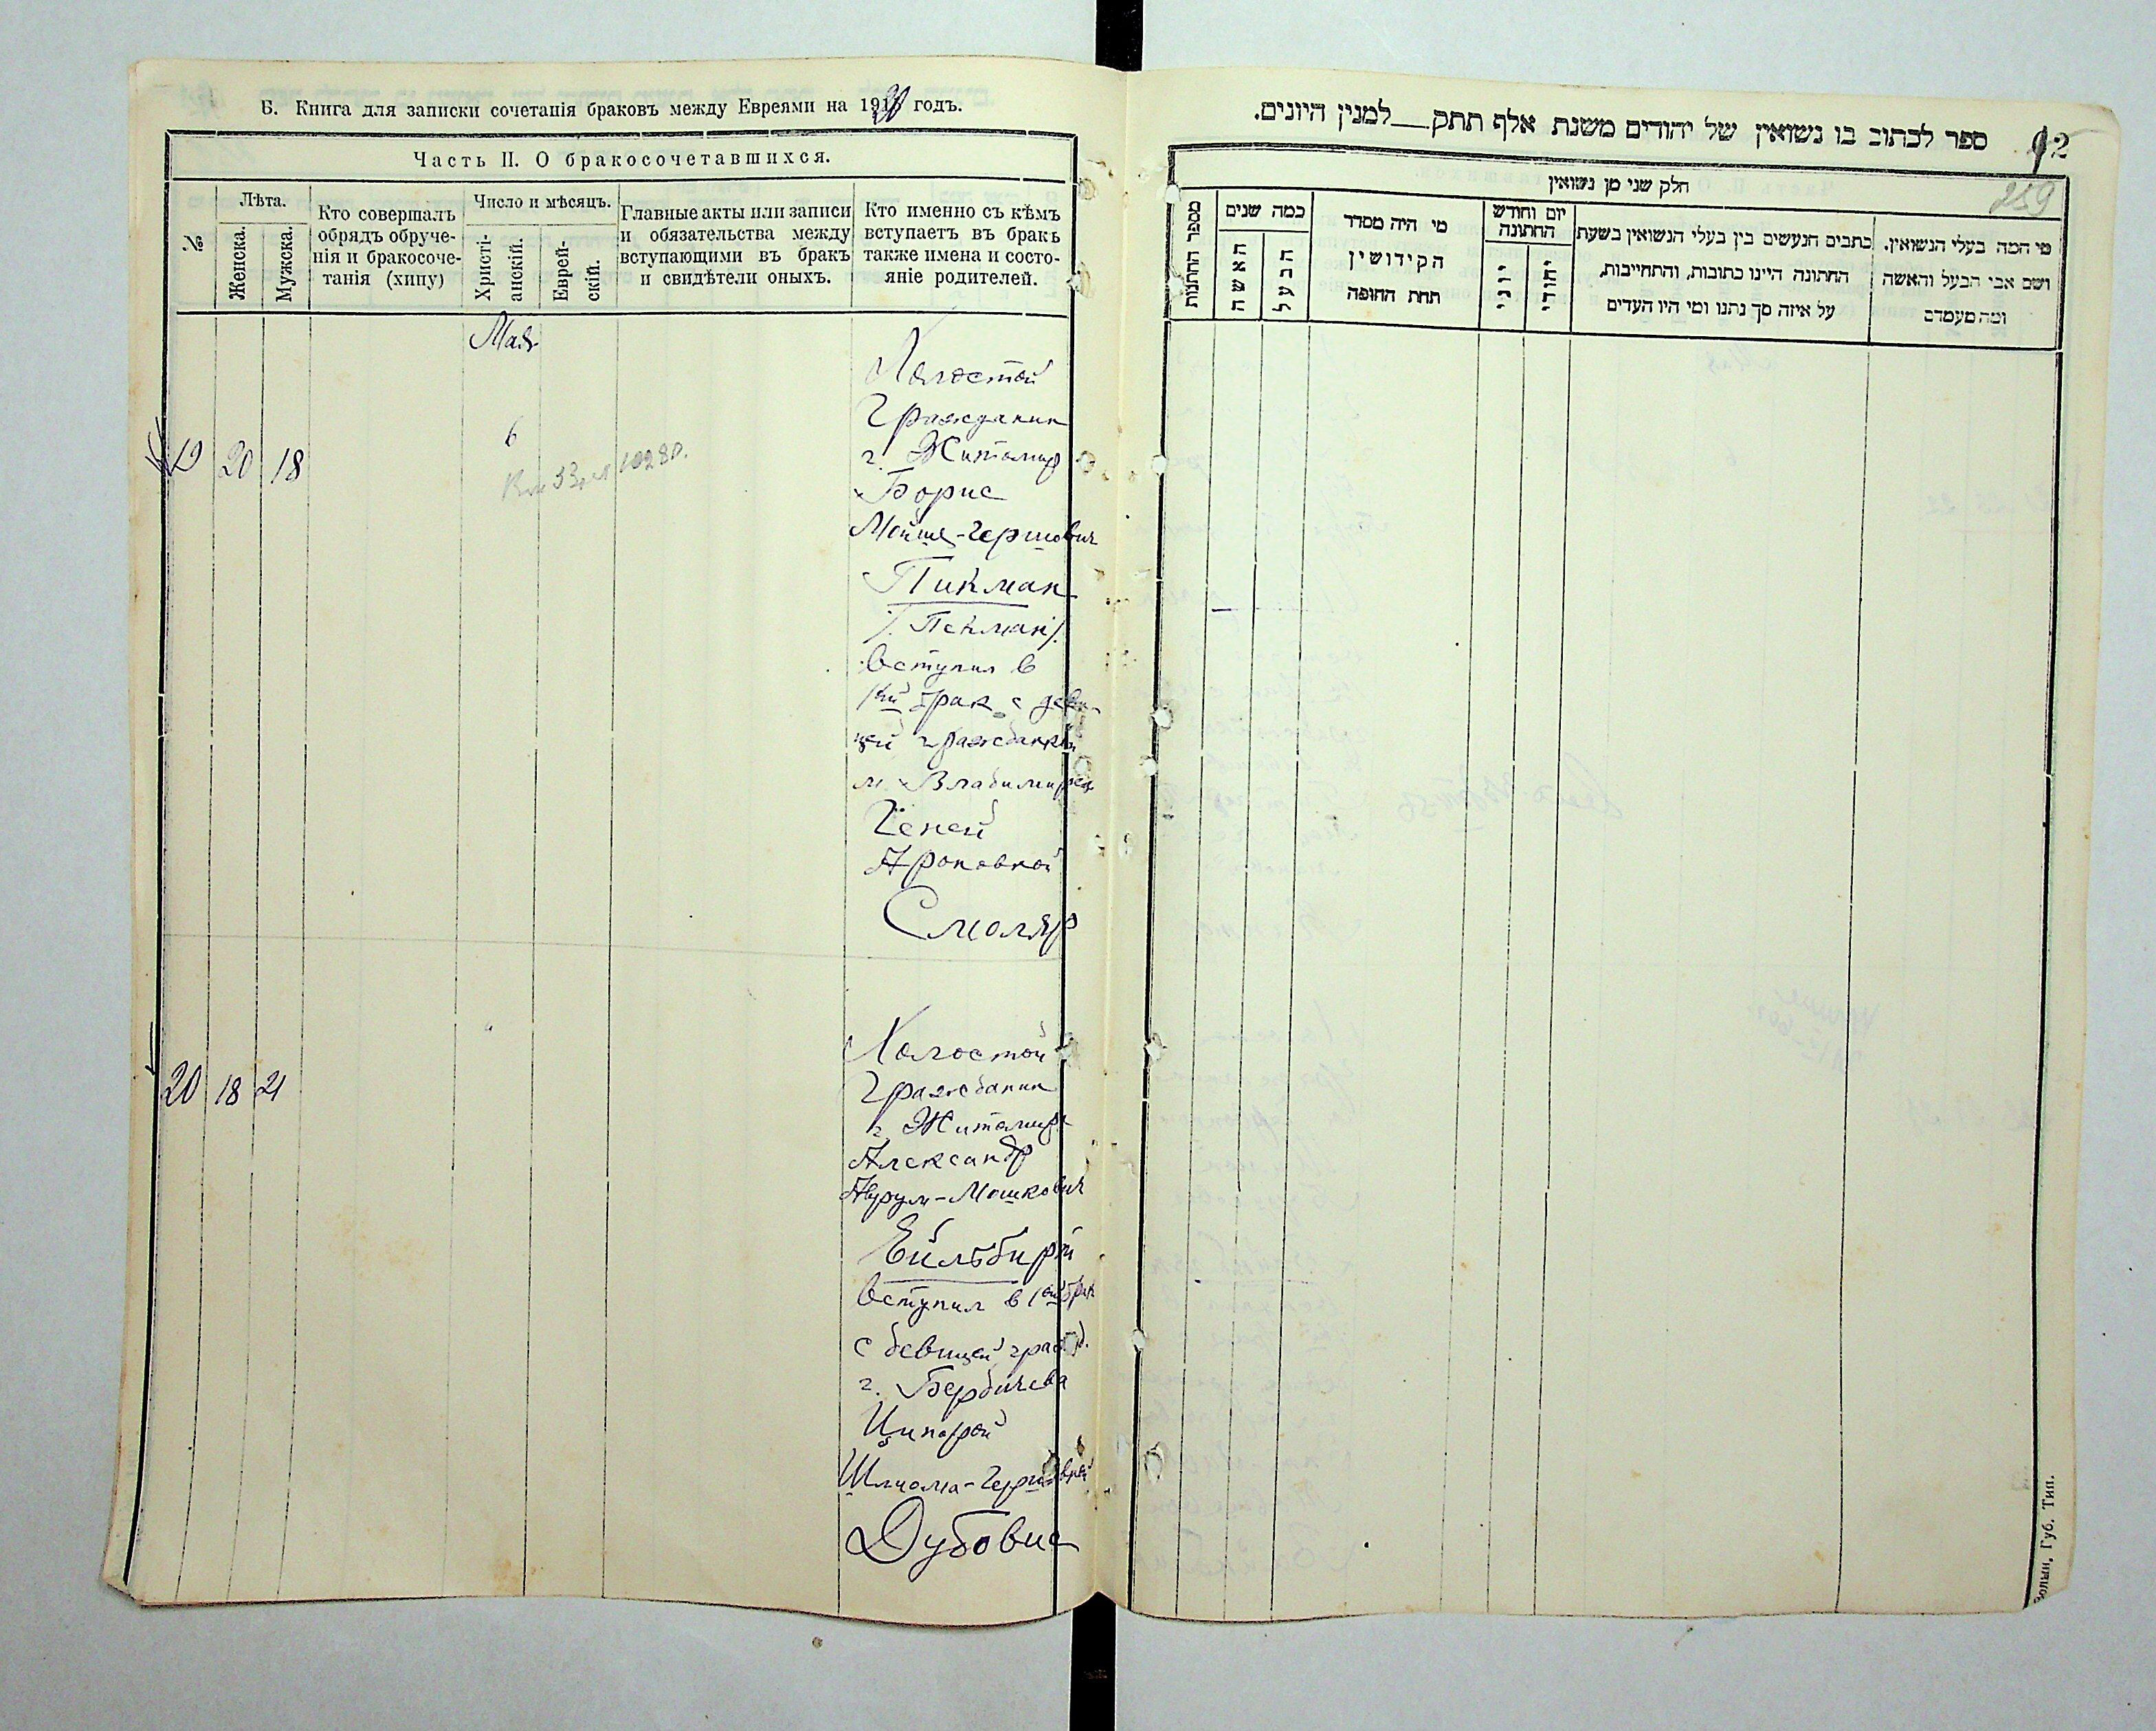 Б. Книга для записки сочетанія браковъ между Евреями на 1920 годъ.
Часть II. О бракосочетавшихся.
№
Лѣта.
Женска.
Мужска.
Кто совершалъ
обрядъ обруче-
нія и бракосоче-
танія (хипу)
Число и мѣсяцъ.
Христі-
анскій.
Еврей-
скій.
Главные акты или записи
и обязательства между
вступающими въ бракъ
и свидѣтели оныхъ.
Кто именно съ кѣмъ
вступаетъ въ бракъ
также имена и состо-
яніе родителей.
Мая
19 20 18
6
Холостой
Гражданин
г. Житомир
Борис
Мойше-Гершович
Пикман
/. Пекман/.
вступил в
1ый брак с деви-
цей гражданкой
м. Владимирец
Геней
Ароновной
Смоляр
20 18 21
Холостой
Гражданин
г. Житомира
Александр
Аврум-Мошкович
вступил в 1ый брак
с девицей гражд.
г. Бердичева
Ципорой
Шлиома-Гершовной
Дубовис
ספר לכתוב בו נשואין של יהודים משנת אלף תתק למנין היונים.
12
259
חלק שני מן נשואין
מספר החתונות
כמה שנים
האשה
הבעל
מי היה מסדר
הקידושין
תחת החופה
יום וחודש
החתונה
יוני
יהודי
כתבים הנעשים בין בעלי הנשואין בשעת
החתונה היינו כתובות, והתחייבות,
על איזה סך נתנו ומי היו העדים
מי המה בעלי הנשואין.
ושם אבי הבעל והאשה
ומה מעמדם
Волын. Губ. Тип.